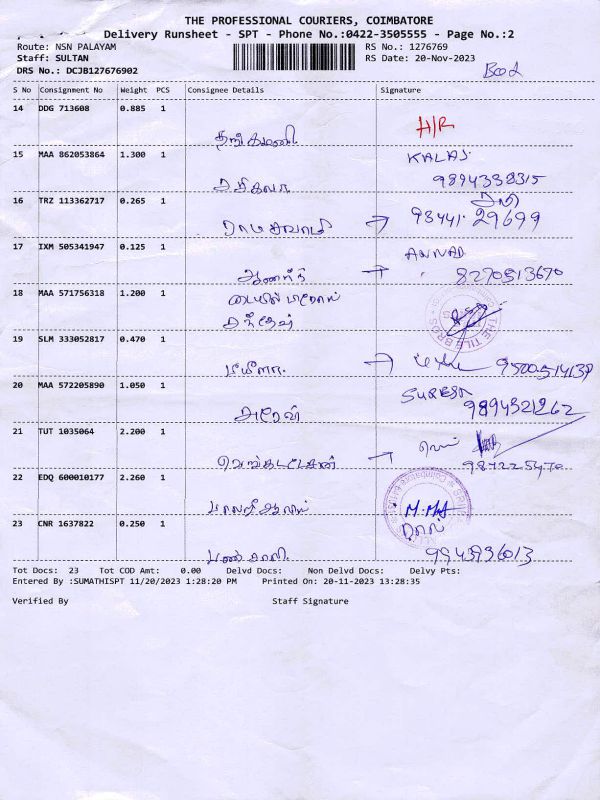 THE PROFESSIONAL COURIERS, COIMBATORE
Delivery Runsheet - SPT - Phone No.:0422-3505555 - Page No.:2
Route: NSN PALAYAM RS No.: 1276769
Staff: SULTAN RS Date: 20-Nov-2023
DRS No.: DCJB127676902
S No Consignment No Weight PCS Consignee Details Signature
14 DDG 713608 0.885 1
H/R
தங்கமணி
15 MAA 862053864 1.300 1 KALAI
சசிகலா 9894338315
16 TRZ 113362717 0.265 1
ராமசுவாமி → 98441 29699
17 IXM 505341947 0.125 1 ANNAD
ஆனந்த் → 8270513670
18 MAA 571756318 1.200 1
THE TILE BROS
19 SLM 333052817 0.470 1
→
20 MAA 572205890 1.050 1 SURESH
9894321262
21 TUT 1035064 2.200 1
வெங்கடேசன் →
22 EDQ 600010177 2.260 1
Coimbatore
M.MA
23 CNR 1637822 0.250 1
9943936013
Tot Docs: 23 Tot COD Amt: 0.00 Delvd Docs: Non Delvd Docs: Delvy Pts:
Entered By :SUMATHISPT 11/20/2023 1:28:20 PM Printed On: 20-11-2023 13:28:35
Verified By Staff Signature